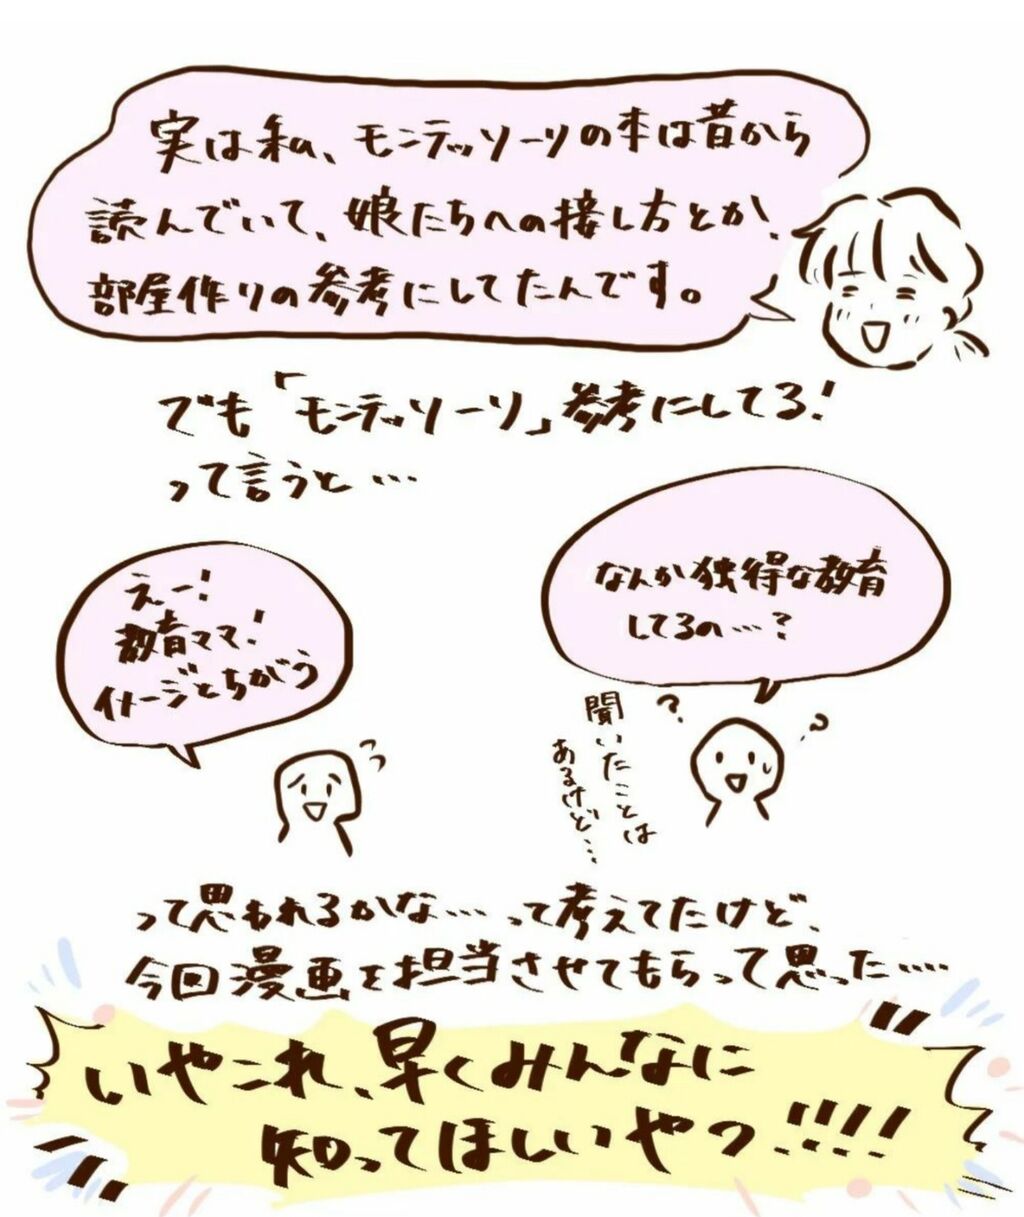 実は私、モンテッソーリの本は昔から
読んでいて、娘たちへの接し方とか、
部屋作りの参考にしてたんです。
でも「モンテッソーリ」参考にしてる!
って言うと…
えー!
教育ママ!
イメージとちがう
なんか独得な教育
してるの…?
聞いたことは
あるけど…
?
?
って思われるかな…って考えてたけど、
今回漫画を担当させてもらって思った….
いやこれ、早くみんなに
知ってほしいやつ!!!!